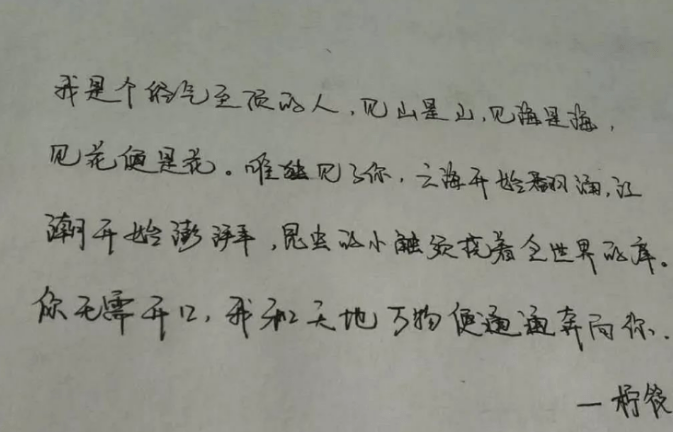 我是个俗气至顶的人,见山是山,见海是海,
见花便是花。唯独见了你,云海开始翻涌,江
潮开始澎湃,昆虫的小触须挠着全世界的痒。
你无需开口,我和天地万物便通通奔向你.
一柠